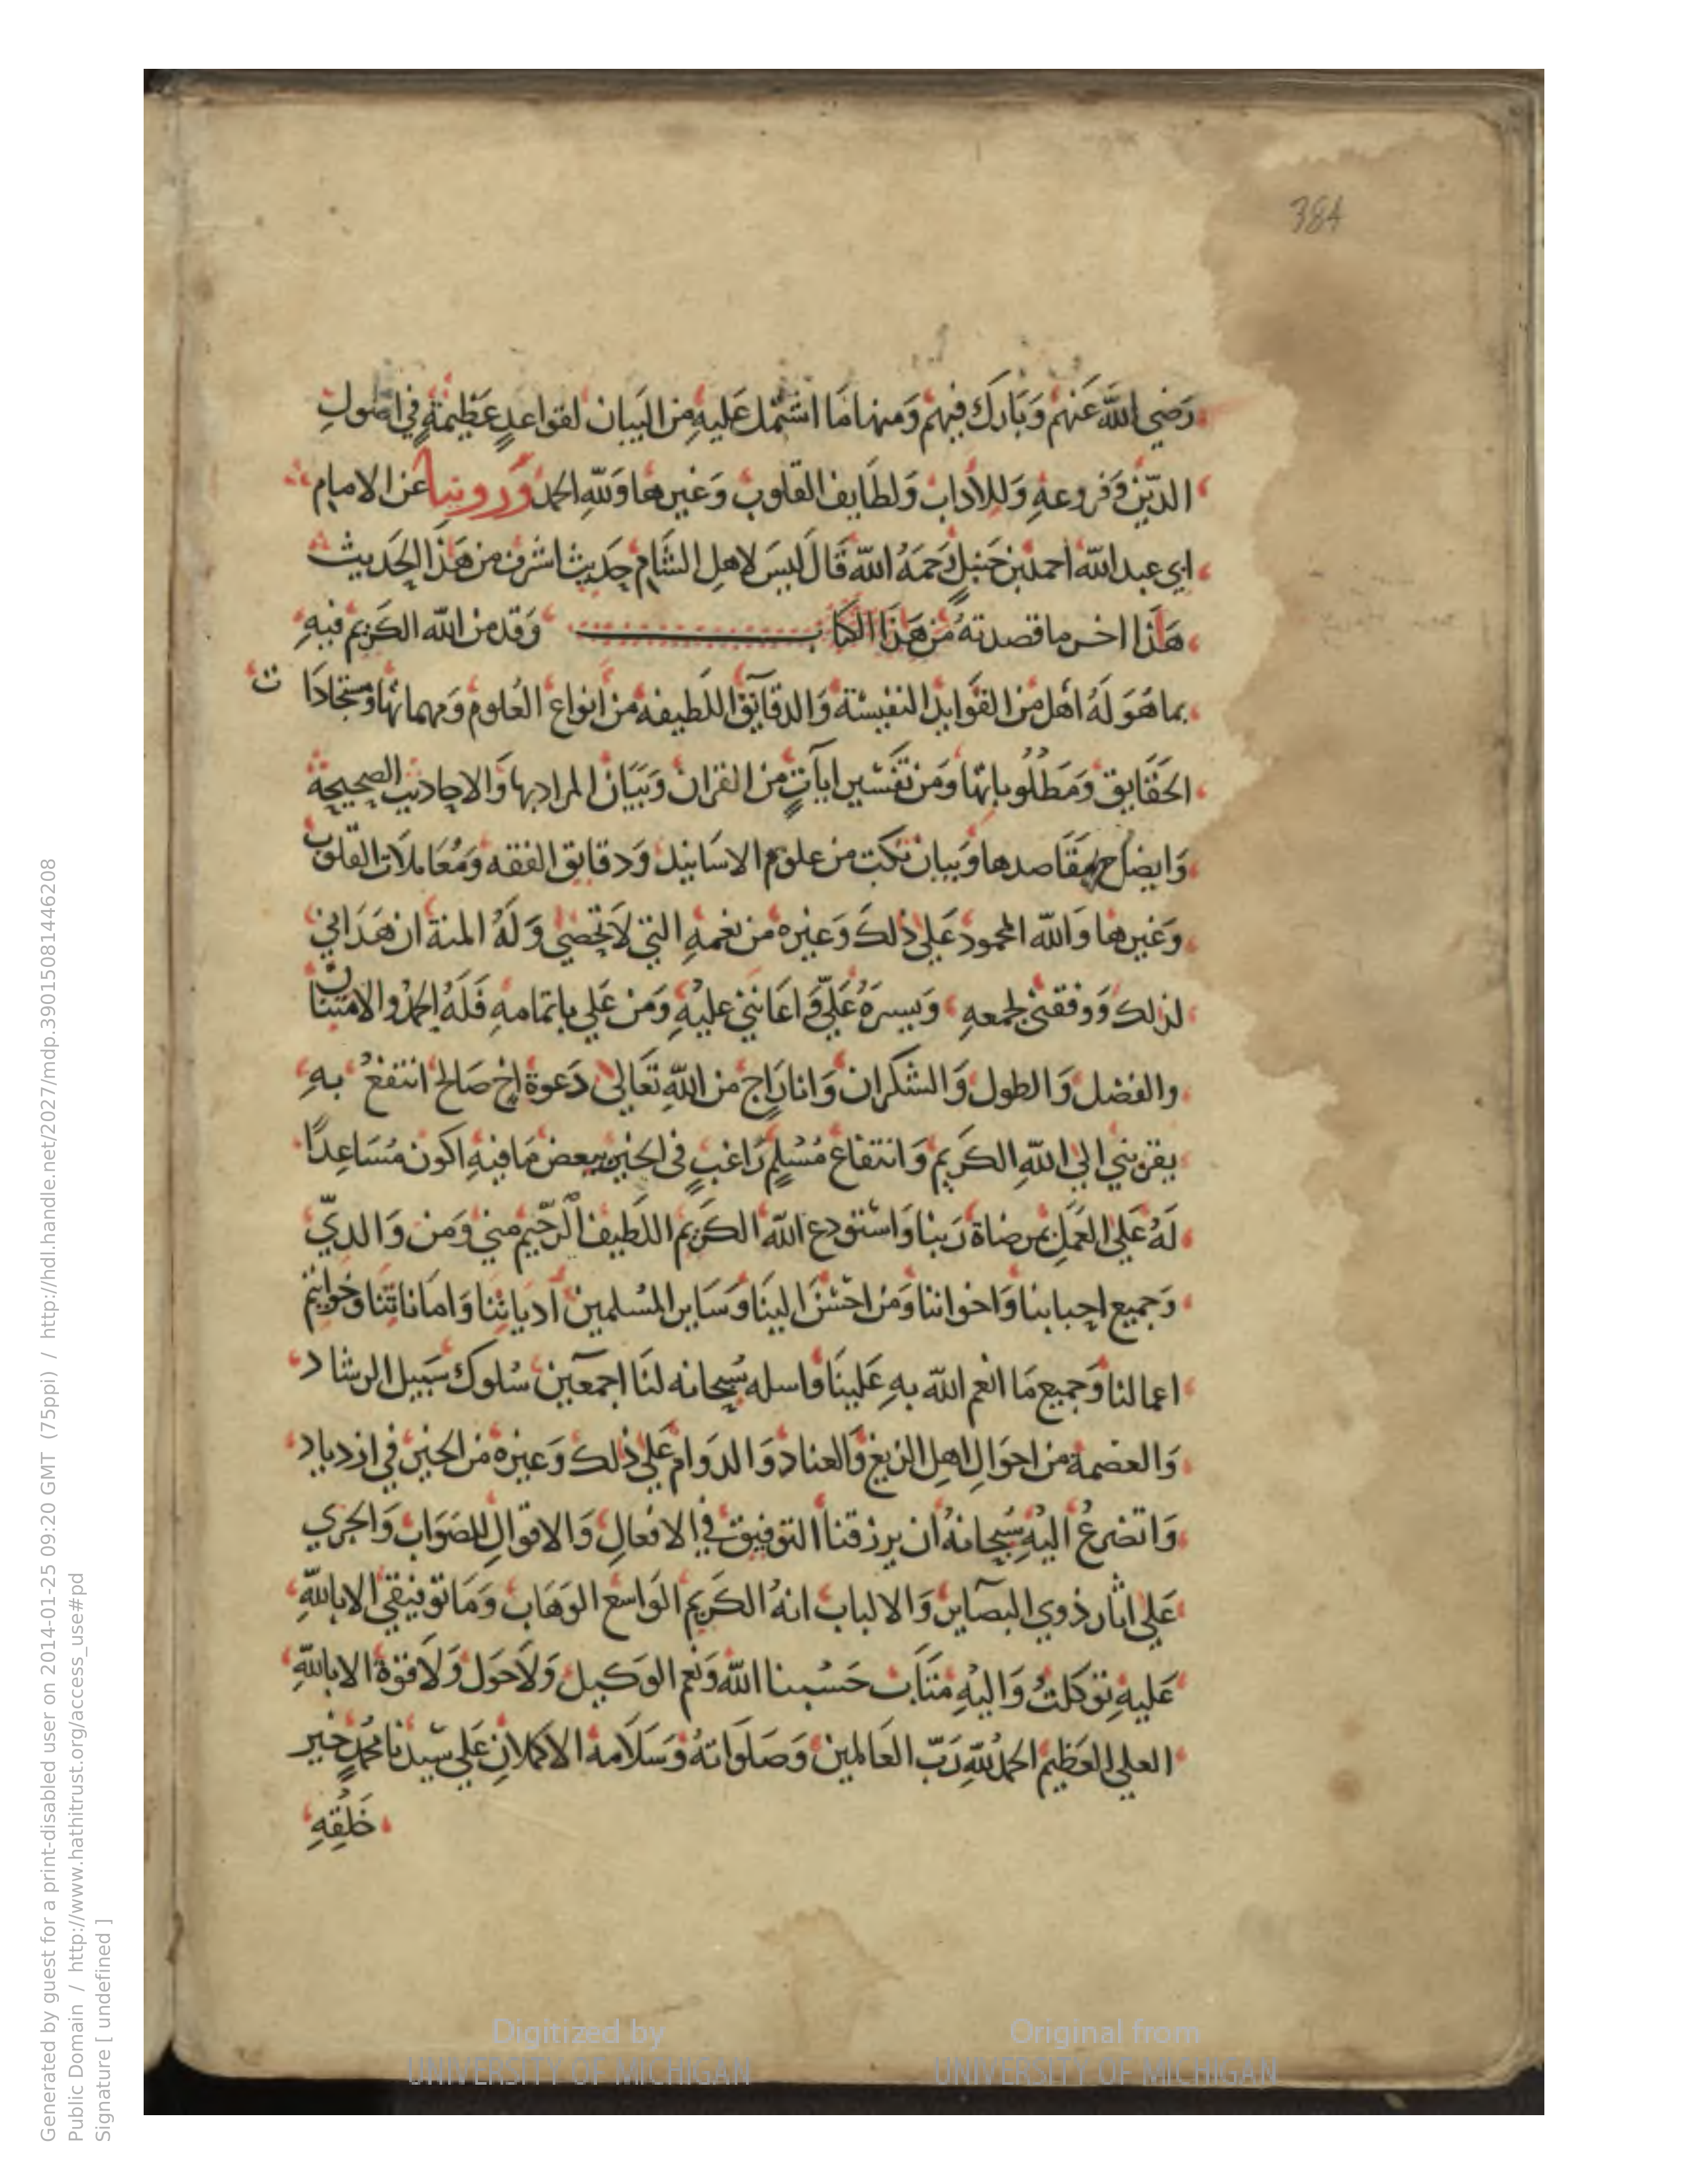 384
رَضي الله عَنهم وَبَارك فيهم وَمنها مَا اشتمل عَليهِ من البَيان لقواعدٍ عَظيمَةٍ في اصُولِ
الدّين وَفروعهِ وَللادَاب وَلطَايف القلوب وَغيرها وَلله الحمد وَروينا عَن الامام
ابي عبد الله احمد بن حَنبلٍ رَحمَهُ الله قَالَ ليسَ لاهل الشَّام حَديث اشرف من هَذا الحَديث
هَذا اخر ما قصدتهُ من هَذا الكتاب وَقد من الله الكَريم فيهِ
بما هَوَ لَهُ أهل من الفَوايد النفيسَة وَالدقَايق اللطيفه من انواع العُلوم وَمهماتها وَمستجَادَات
الحَقَايق وَمَطلُوباتها وَمن تَفسير ايآتٍ من القرَان وَبَيَان المراد بها وَالاحاديث الصحيحة
وَايضَاح مَقَاصدها وَبيان نكت من علوم الاسَانيد وَدقايق الفقه وَمُعَاملات القلوب
وَغيرها وَالله المحمود عَلي ذلكَ وَغيره من نعمهِ التي لاَ تحصَي وَلَهُ المنة ان هَدَاني
لذلك وَوفقني لجمعهِ وَيسرَهُ عَليَّ وَاعَانني عليهِ وَمن عَلي باتمامهِ فَلَهُ الحمدُ والامتنان
والفضل وَالطول وَالشكران وَانا رَاجٍ من اللهِ تَعَالي دَعوة اخٍ صَالح انتفعُ بهِ
يقربني الي اللهِ الكَريم وَانتفاع مُسْلمٍ رَاغبٍ في الخير ببعض مَا فيهِ اكون مُسَاعِدًا
لَهُ عَلي العَمَل بمرضاة رَبنا وَاستودع الله الكَريم اللطيف الرَّحيم مني وَمن وَالديّ
وَجميع احبابنا وَاخواننا وَمن احسَنَ الينَا وَسَاير المسْلمين اديَاننا وَامَانَاتنا وَخواتم
اعمالنا وَجميع مَا انعم الله بهِ عَلينَا وَاسله سُبحَانه لنَا اجمعين سُلوك سَبيل الرشاد
وَالعصمة من احوَالِ اهل الزيغ وَالعناد وَالدوام عَلي ذلك وَغيره من الخير في ازدياد
وَاتضرعُ اليهِ سُبحانهُ ان يرزقنا التوفيق في الافعالِ وَالاقوالِ للصَوَاب وَالجري
عَلي اثار ذوي البصَاير وَالالباب انهُ الكَريم الوَاسع الوَهَاب وَمَا توفيقي الا باللهِ
عَليهِ توكلتُ وَاليهِ مَتَاب حَسْبنا الله وَنعم الوكيل وَلاَ حَول وَلاَ قوة الا باللهِ
العلي العَظيم الحمدُ للهِ رَبّ العَالمين وَصَلوَاتهُ وَسَلاَمهُ الاكملانِ عَلي سَيّدنَا محُمدٍ خَير
خَلقِهِ
Generated by guest for a print-disabled user on 2014-01-25 09:20 GMT (75ppi) / http://hdl.handle.net/2027/mdp.39015081446208
Public Domain / http://www.hathitrust.org/access_use#pd
Signature [ undefined ]
Digitized by
UNIVERSITY OF MICHIGAN
Original from
UNIVERSITY OF MICHIGAN